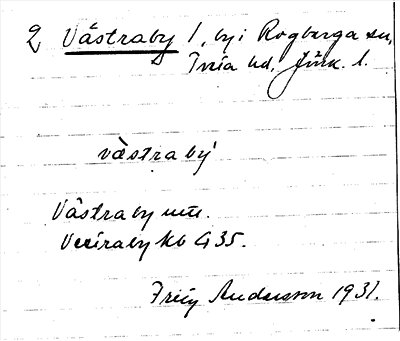 2 Västraby 1, by i Rogberga sn,
Tveta hd. Jönk. l.
vàstrabý
Västraby um.
Vestraby kb G 35.
Fritz Andersson 1931.